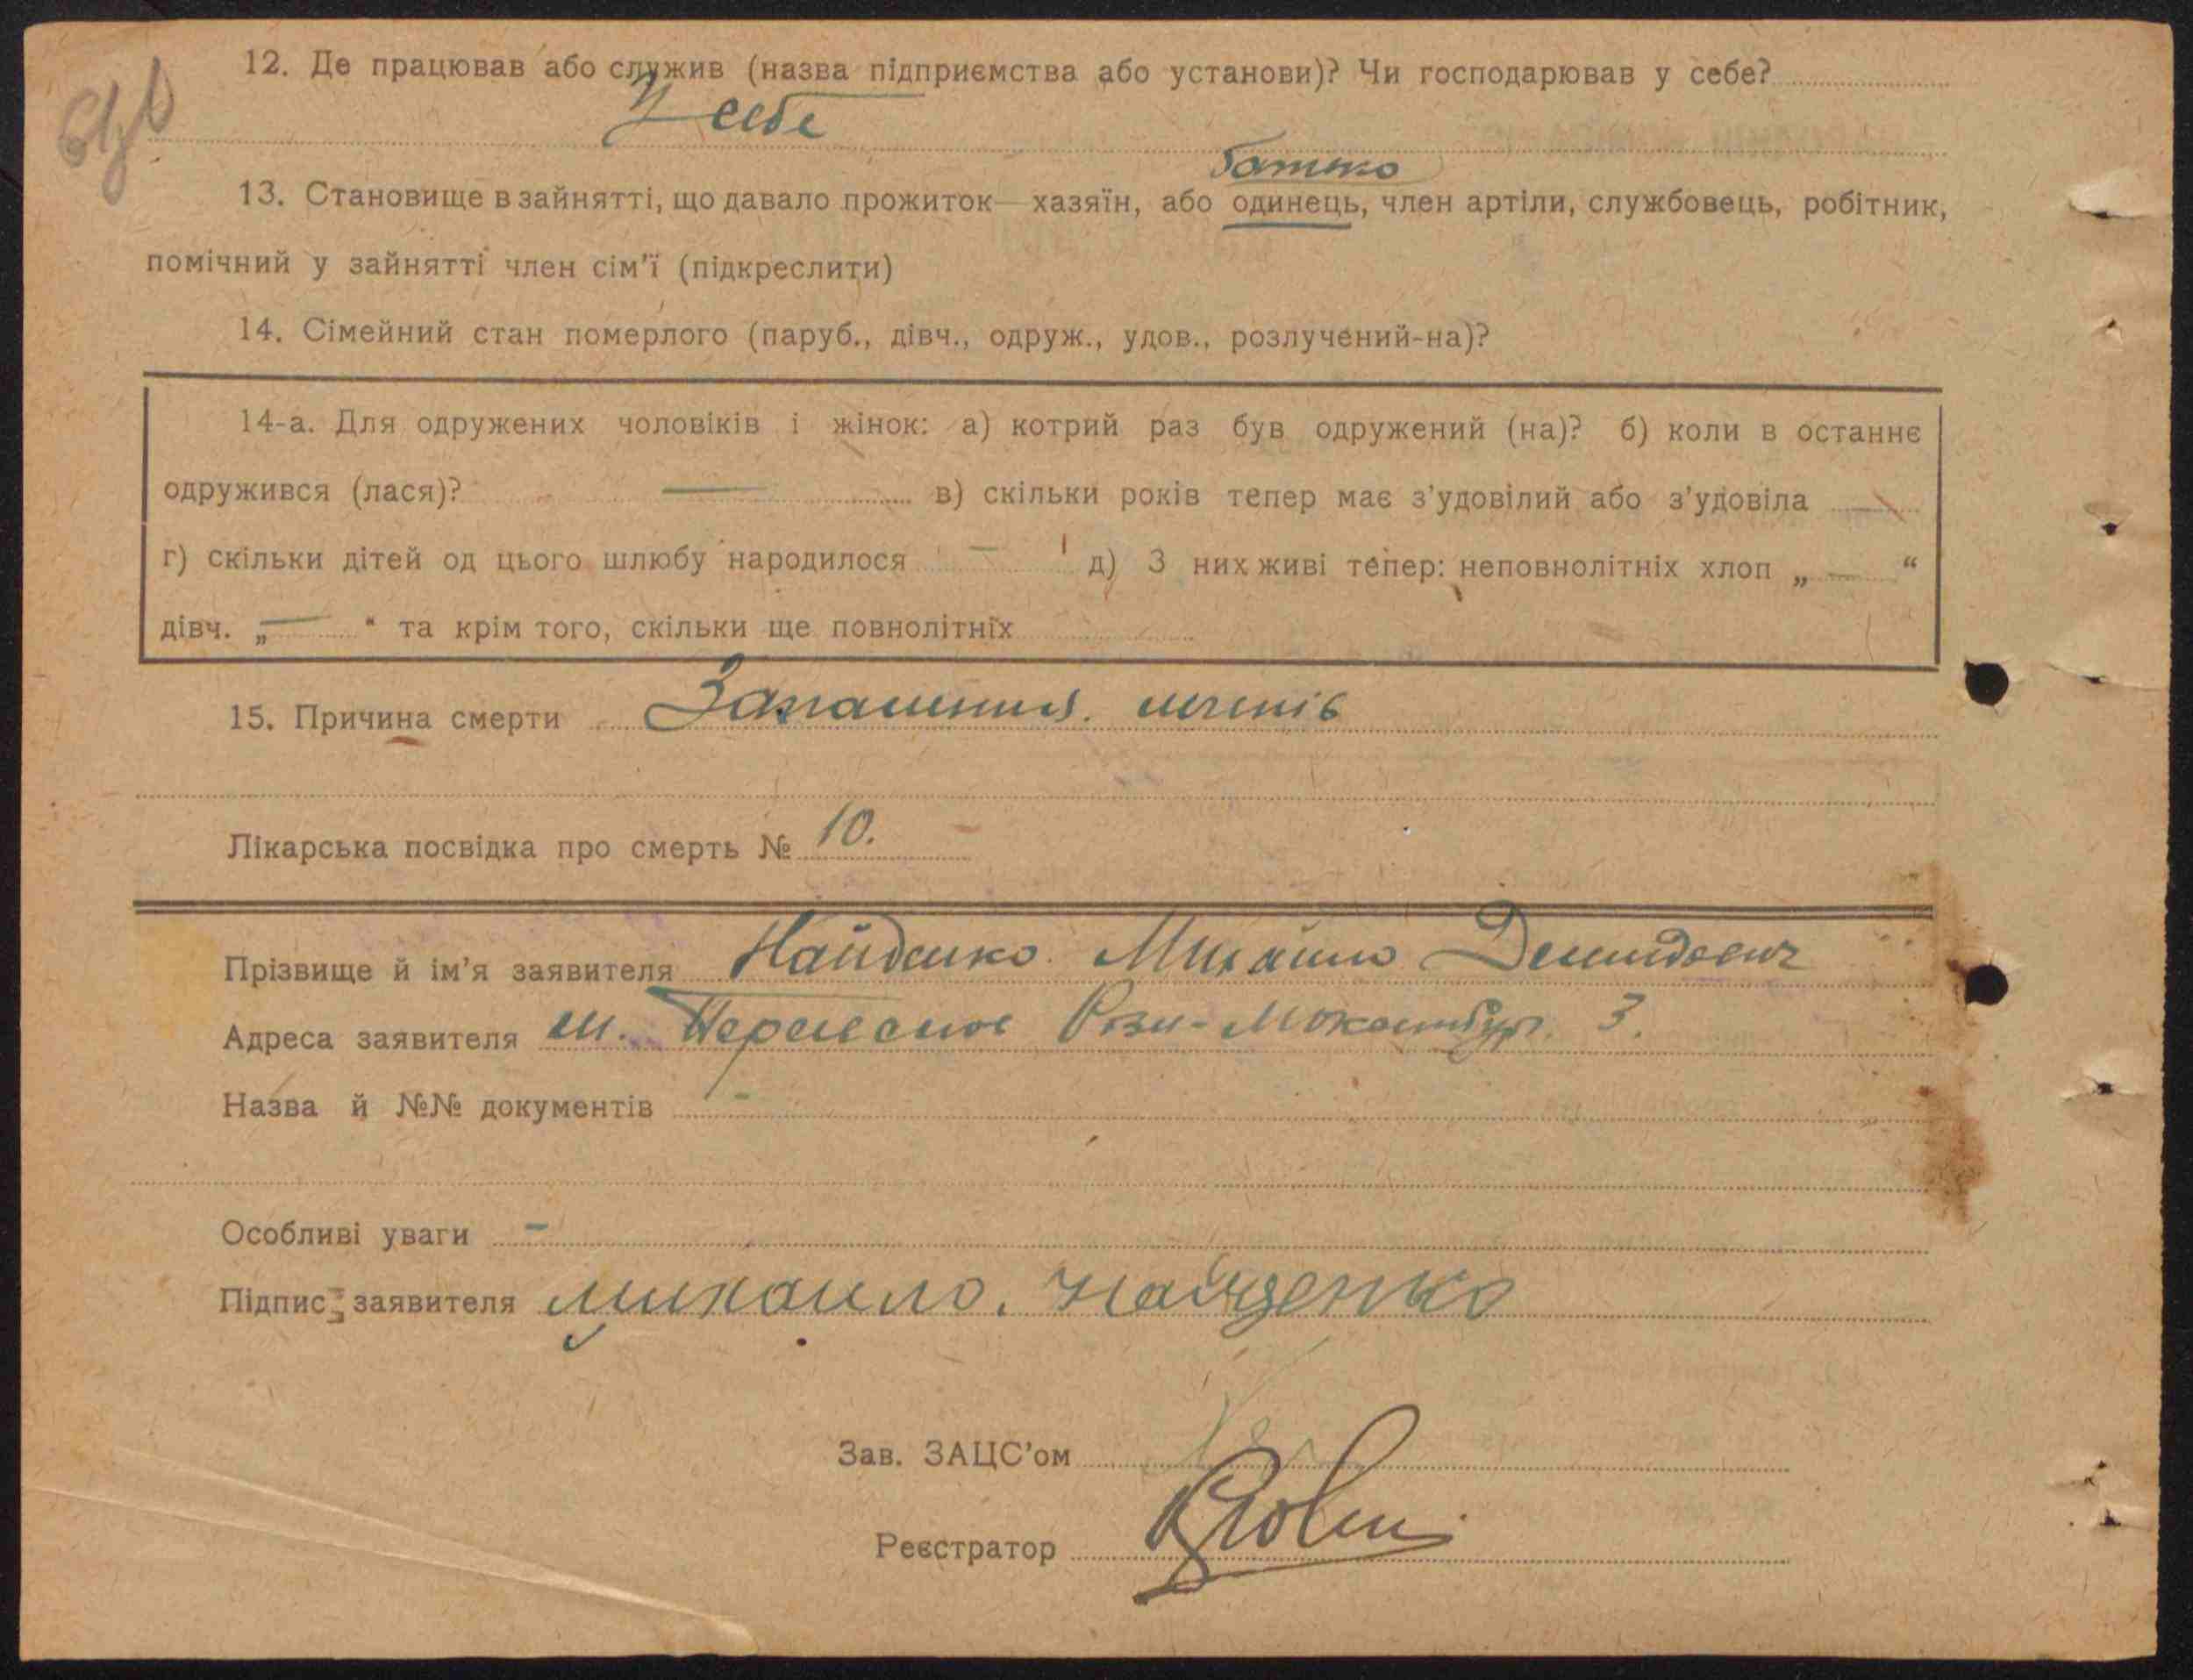 12. Де працював або служив (назва підприємства або установи)? Чи господарював у себе?
У себе
батько
13. Становище в зайнятті, що давало прожиток — хазяїн, або одинець, член артіли, службовець, робітник,
помічний у зайнятті член сім'ї (підкреслити)
14. Сімейний стан померлого (паруб., дівч., одруж., удов., розлучений-на)?
14-а. Для одружених чоловіків і жінок: а) котрий раз був одружений (на)? б) коли в останнє
одружився (лася)? — в) скільки років тепер має з'удовілий або з'удовіла —
г) скільки дітей од цього шлюбу народилося — д) З них живі тепер: неповнолітніх хлоп „ — “
дівч. „ — “ та крім того, скільки ще повнолітніх
15. Причина смерти Запалення легенів
Лікарська посвідка про смерть № 10.
Прізвище й ім'я заявителя Найденко Михайло Демидович
Адреса заявителя 3.
Назва й №№ документів -
Особливі уваги -
Підпис заявителя Михайло. Найденко
Зав. ЗАЦС'ом
Реєстратор